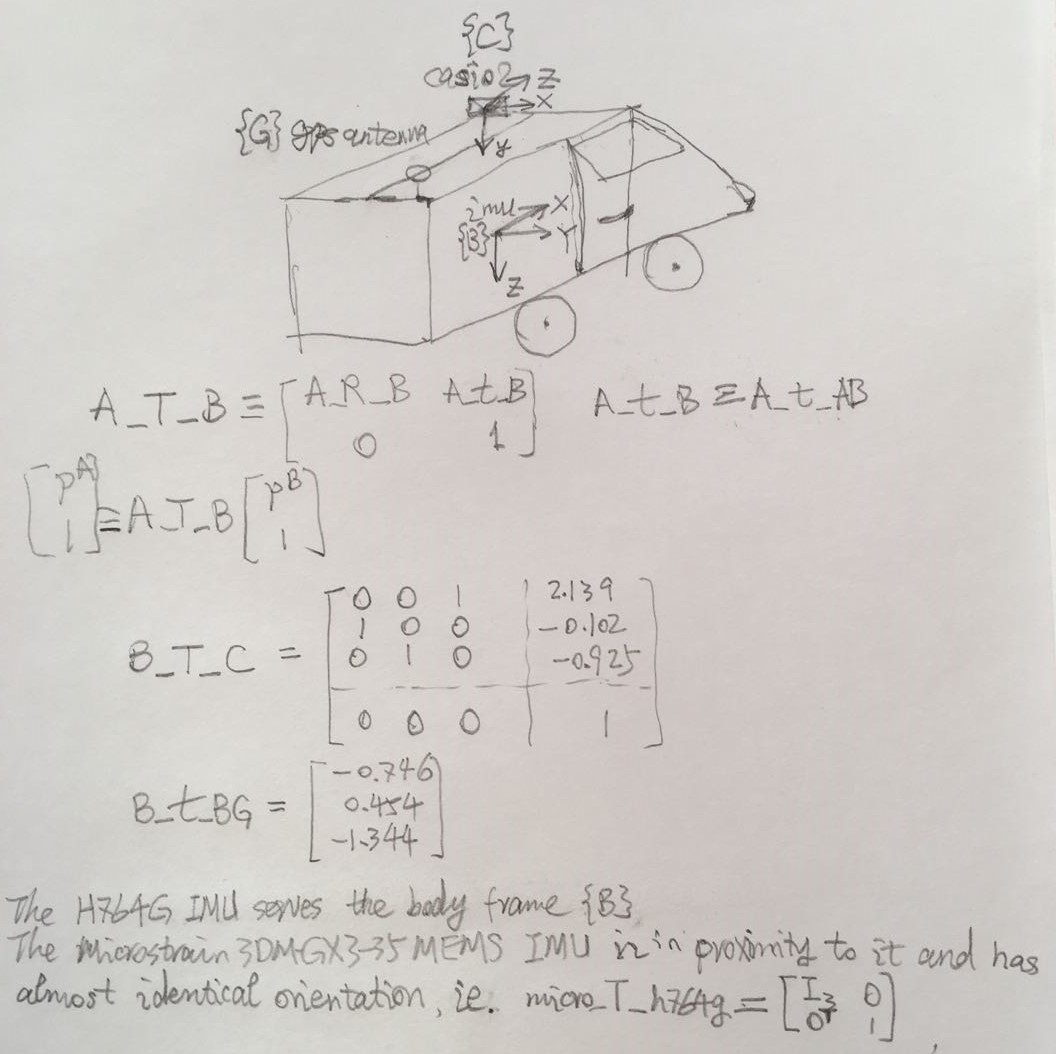 {C}
casio2 Z
X
{G} gps antenna
y
imu X
{B} Y
Z
A_T_B ≡ [A_R_B A_t_B
0 1] A_t_B ≡ A_t_AB
[p^A
1] ≡ A_T_B [p^B
1]
B_T_C = [0 0 1 | 2.139
1 0 0 | -0.102
0 1 0 | -0.925
0 0 0 | 1]
B_t_BG = [-0.746
0.454
-1.344]
The H764G IMU serves the body frame {B}
The Microstrain 3DM-GX3-35 MEMS IMU is in proximity to it and has
almost identical orientation, ie. micro_T_h764g = [I_3 0
0^T 1]